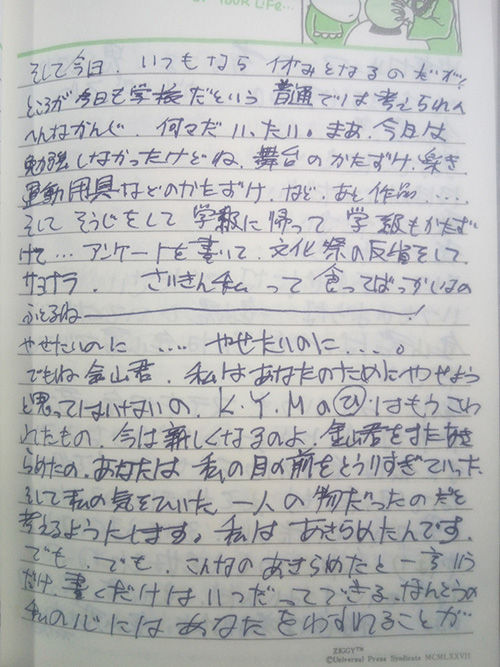 OF YOUR LiFE...
そして今日、いつもなら 休みとなるのだが、
ところが今日も学校だという 普通では考えられん
へんなかんじ、何々だ いったい。まあ、今日は
勉強しなかったけどね、舞台のかたずけ、
運動用具などのかたずけ、など、あと 作品....
そして そうじをして 学級に帰って 学級もかたず
けて... アンケートを書いて、文化祭の反省をして
サヨナラ. さいきん私って 食ってばっかいなの
ふとるね――――!
やせたいのに .... やせたいのに....。
でもね 金山君、私はあなたのためにやせよう
と思ってはいないの、K.Y.Mの はもうこわ
れたもの、今は新しくなるのよ、金山君をまたあき
らめたの、あなたは 私の目の前をとうりすぎていった
そして私の気をひいた 一人の物だったのだと
考えるようにします。私は あきらめたんです。
でも、でも、こんなの あきらめたと一言いう
だけ、書くだけは いつだってできる、なんとうの
私の心には あなたをわすれることが
ZIGGY™
©Universal Press Syndicate MCMLXXVII